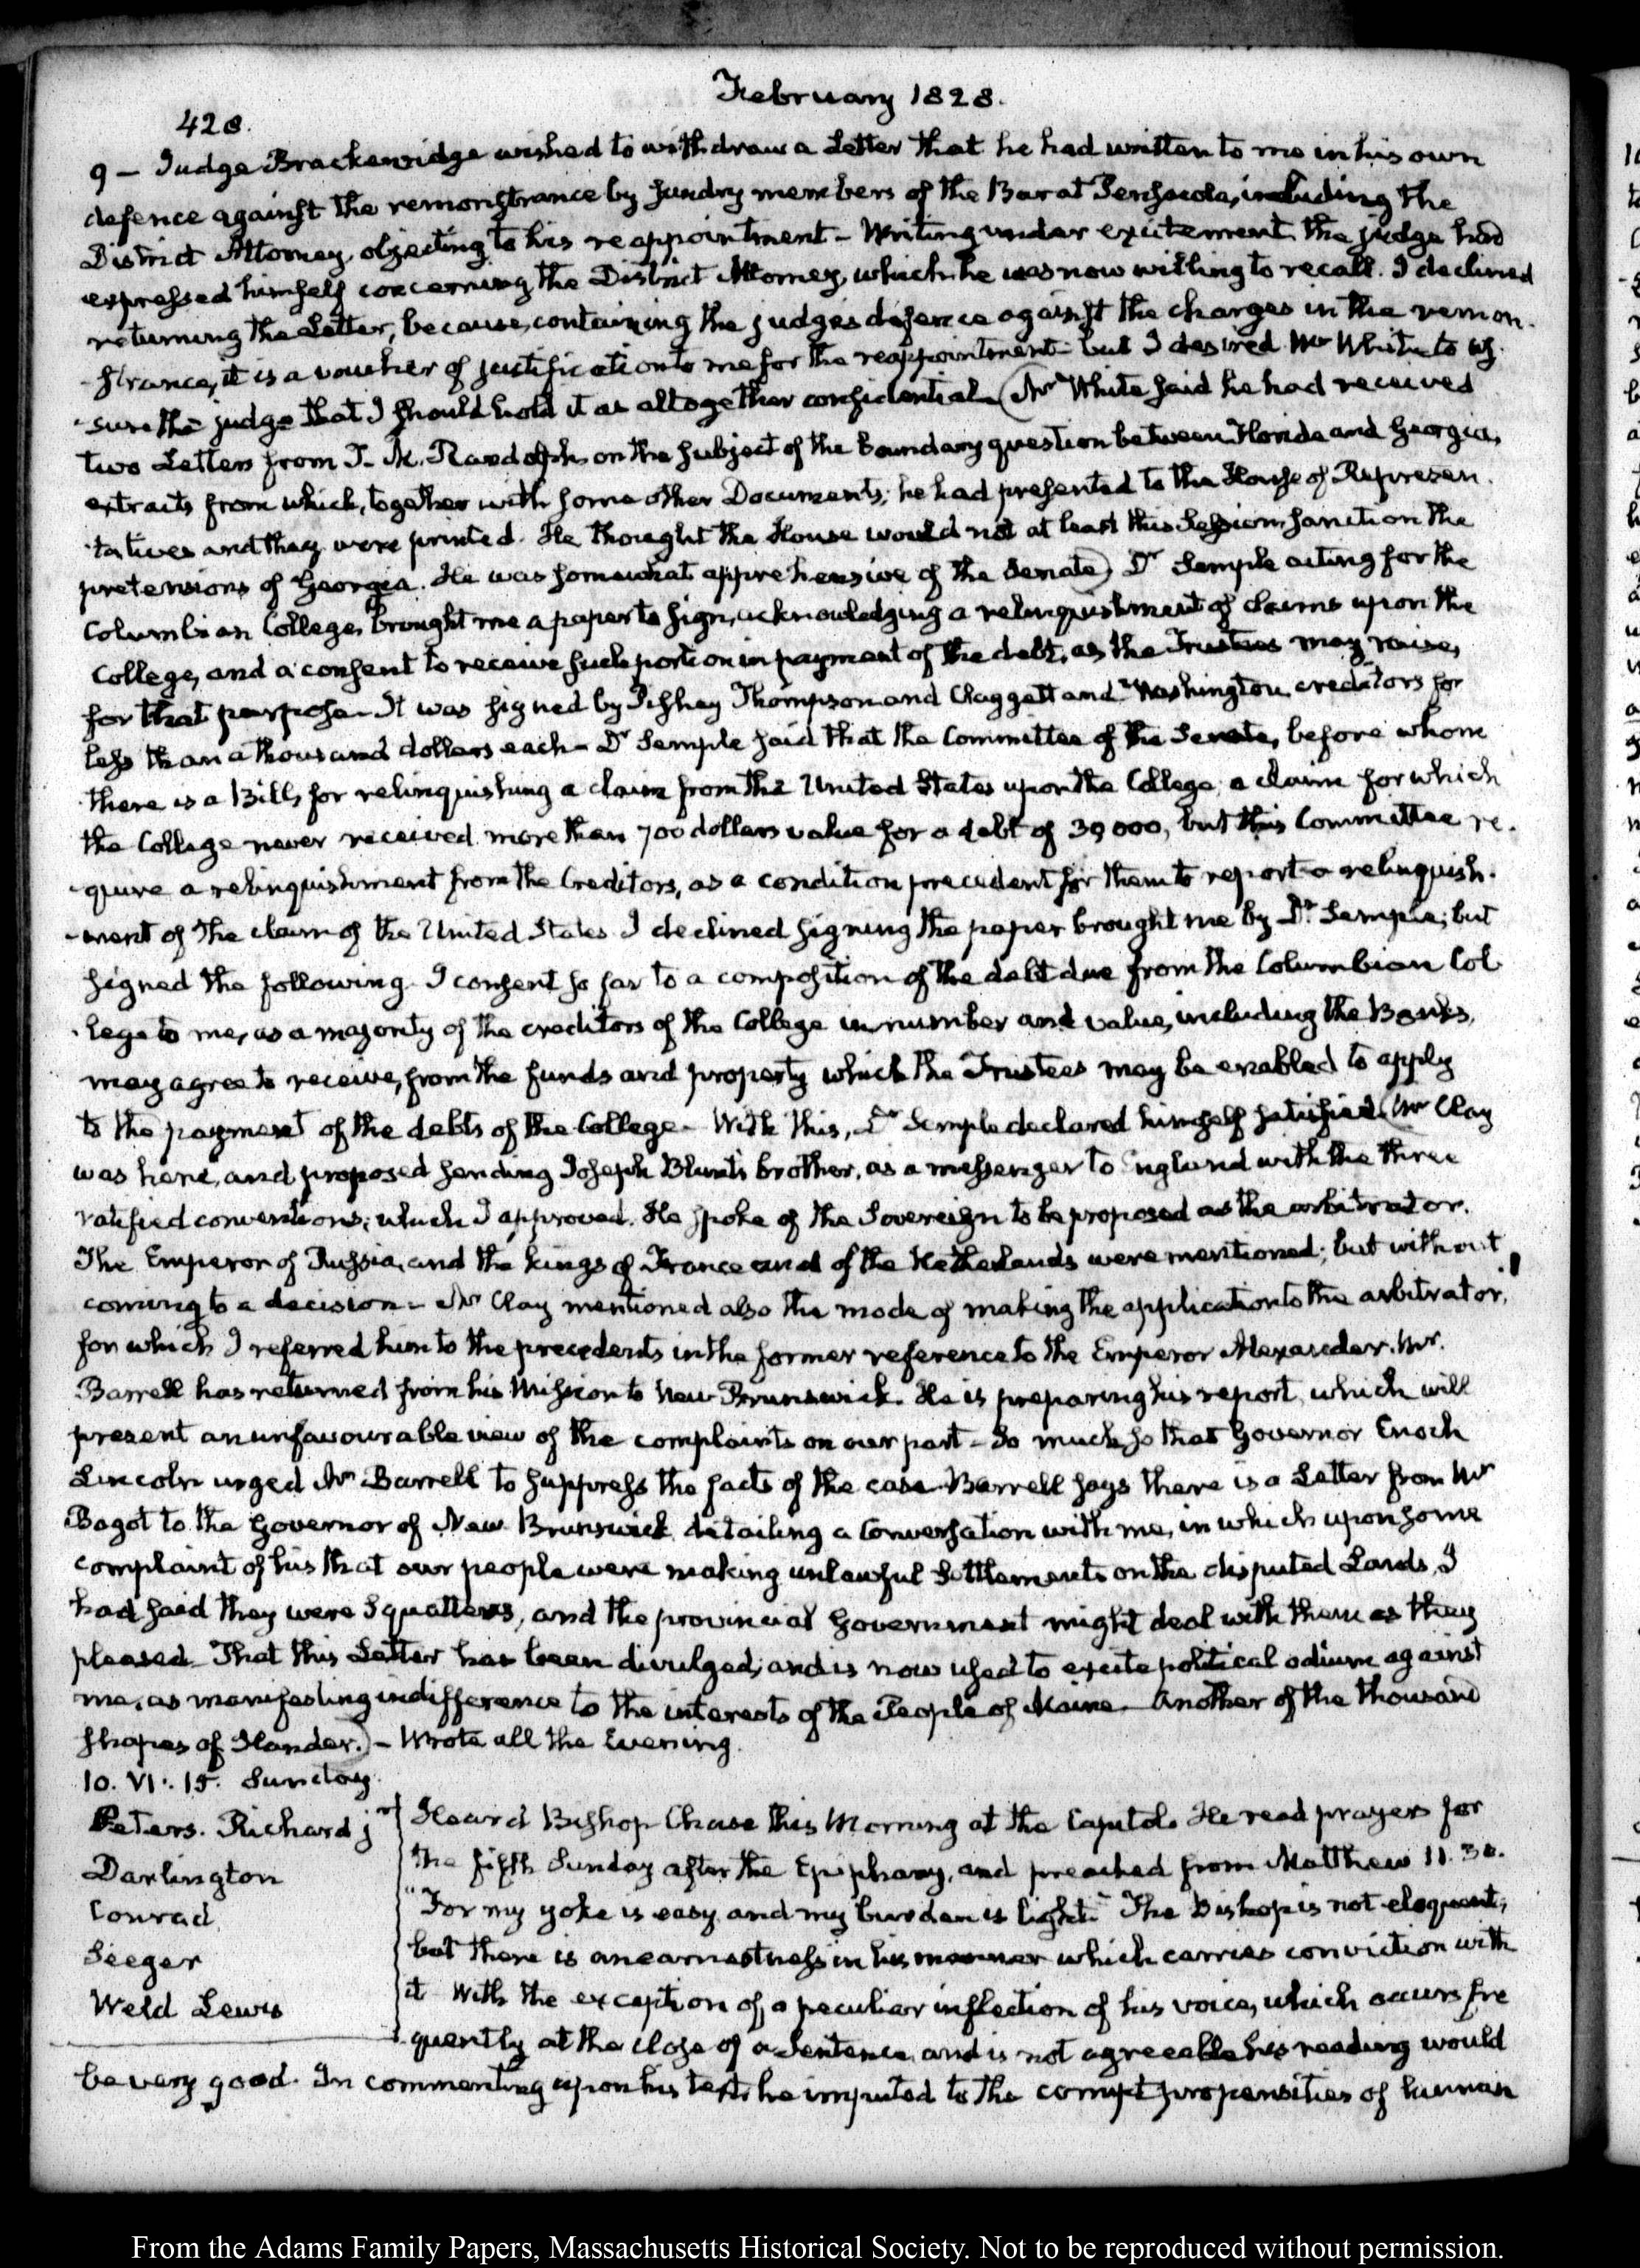 February 1828.
428.
9 – Judge Brackenridge wished to withdraw a Letter that he had written to me in his own
defence against the remonstrance by sundry members of the Bar at Pensacola, including the
District Attorney, objecting to his reappointment – Writing under excitement, the judge had
expressed himself concerning the District Attorney, which he was now willing to recall. I declined
returning the Letter, because, containing the judge's defence against the charges in the remon-
-strance, it is a voucher of justification to me for the reappointment – but I desired Mr White to as-
-sure the judge that I should hold it as altogether confidential – (Mr White said he had received
two Letters from T. M. Randolph on the subject of the boundary question between Florida and Georgia,
extracts from which, together with some other Documents, he had presented to the House of Represen-
-tatives and they were printed. He thought the House would not at least this Session sanction the
pretensions of Georgia. He was somewhat apprehensive of the Senate) Dr Semple acting for the
Columbian College, brought me a paper to sign, acknowledging a relinquishment of claims upon the
College, and a consent to receive such portion in payment of the debt, as the Trustees may raise,
for that purpose – It was signed by Tiffney Thompson and Claggett and Washington, creditors for
less than a thousand dollars each – Dr Semple said that the Committee of the Senate, before whom
there is a Bill, for relinquishing a claim from the United States upon the College, a claim for which
the College never received more than 700 dollars value for a debt of 30 000, but this Committee re-
-quire a relinquishment from the Creditors, as a condition precedent for them to report a relinquish-
-ment of the claim of the United States. I declined signing the paper brought me by Dr. Semple; but
signed the following. I consent so far to a composition of the debt due from the Columbian Col
-lege to me, as a majority of the creditors of the College in number and value, including the Banks,
may agree to receive, from the funds and property which the Trustees may be enabled to apply
to the payment of the debts of the College – With this, Dr Semple declared himself satisfied (Mr Clay
was here, and proposed sending Joseph Blunt's brother, as a messenger to England with the three
ratified conventions; which I approved. He spoke of the Sovereign to be proposed as the arbitrator.
The Emperor of Russia, and the kings of France and of the Netherlands were mentioned; but without
coming to a decision – Mr Clay mentioned also the mode of making the application to the arbitrator,
for which I referred him to the precedents in the former reference to the Emperor Alexander. Mr.
Barrell has returned from his Mission to New-Brunswick. He is preparing his report, which will
present an unfavourable view of the complaints on our part – So much so that Governor Enoch
Lincoln urged Mr Barrell to suppress the facts of the case. Barrell says there is a Letter from Mr
Bagot to the Governor of New Brunswick detailing a Conversation with me, in which upon some
complaint of his that our people were making unlawful Settlements on the disputed Lands, I
had said they were Squatters, and the provincial Government might deal with them as they
pleased – That this Letter has been divulged, and is now used to excite political odium against
me, as manifesting indifference to the interests of the People of Maine – Another of the thousand
shapes of Slander.) – Wrote all the Evening.
10. VI:. 15. Sunday.
Peters. Richard jr
Darlington
Conrad
Seeger
Weld Lewis
Heard Bishop Chase this Morning at the Capitol. He read prayers for
the fifth Sunday after the Epiphany, and preached from Matthew 11. 30.
"For my yoke is easy and my burden is light." The Bishop is not eloquent,
but there is an earnestness in his manner which carries conviction with
it With the exception of a peculiar inflection of his voice, which occurs fre
-quently at the close of a Sentence, and is not agreeable his reading would
be very good. In commenting upon his text, he imputed to the corrupt propensities of human
From the Adams Family Papers, Massachusetts Historical Society. Not to be reproduced without permission.